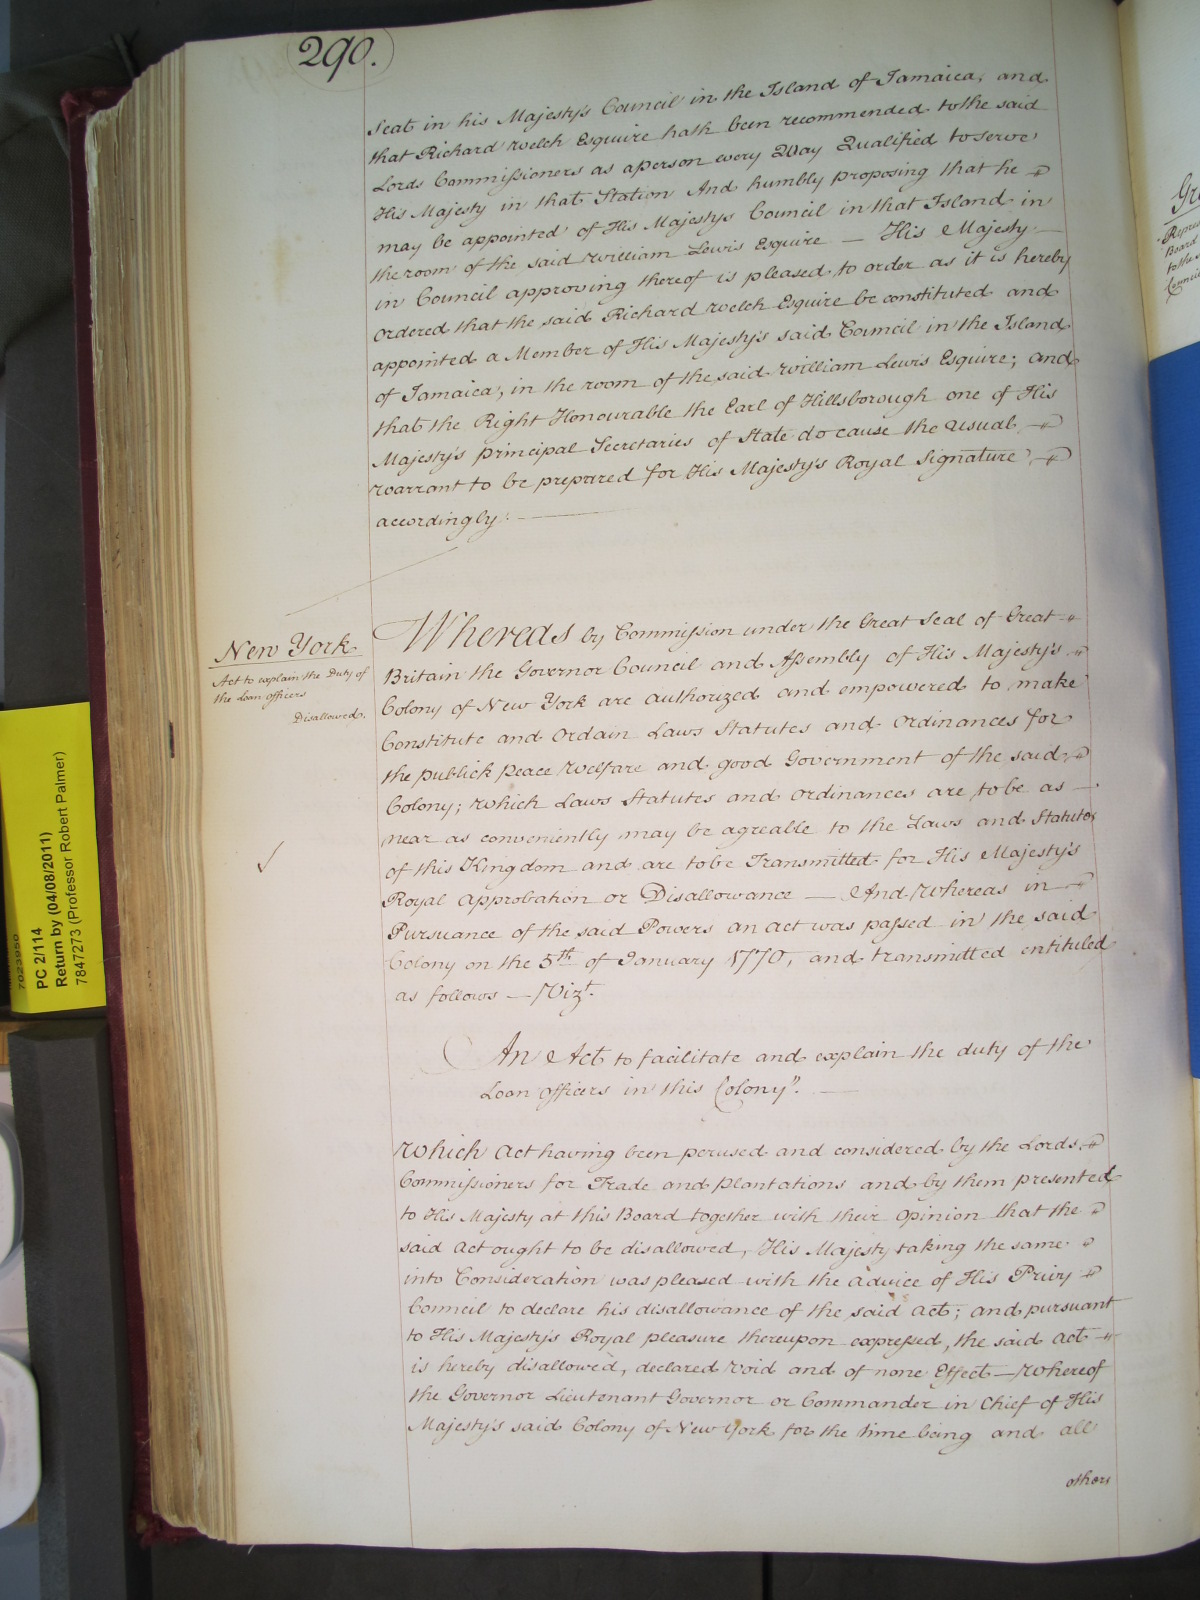 290.
Seat in his Majesty's Council in the Island of Jamaica, and
that Richard Welch Esquire hath been recommended to the said
Lords Commissioners as a person every Way Qualified to serve
His Majesty in that Station And humbly proposing that he
may be appointed of His Majestys Council in that Island in
the room of the said William Lewis Esquire — His Majesty
in Council approving thereof is pleased to order as it is hereby
Ordered that the said Richard Welch Esquire be constituted and
appointed a Member of His Majesty's said Council in the Island
of Jamaica, in the room of the said William Lewis Esquire; and
that the Right Honourable the Earl of Hillsborough one of His
Majesty's principal Secretaries of State do cause the usual
warrant to be prepared for His Majesty's Royal Signature
accordingly.
New York
Act to explain the Duty of
the Loan officers
Disallowed.
Whereas by Commission under the Great Seal of Great
Britain the Governor Council and Assembly of His Majesty's
Colony of New York are authorized and empowered to make
Constitute and Ordain Laws Statutes and Ordinances for
the publick Peace Welfare and good Government of the said
Colony; which Laws Statutes and Ordinances are to be as
near as conveniently may be agreable to the Laws and Statutes
of this Kingdom and are to be Transmitted for His Majesty's
Royal Approbation or Disallowance — And Whereas in
Pursuance of the said Powers an Act was passed in the said
Colony on the 5th of January 1770, and transmitted entituled
as follows — Vizt.
An Act to facilitate and explain the duty of the
Loan officers in this Colony".
Which Act having been perused and considered by the Lords
Commissioners for Trade and Plantations and by them presented
to His Majesty at this Board together with their Opinion that the
said Act ought to be disallowed, His Majesty taking the same
into Consideration was pleased with the advice of His Privy
Council to declare his disallowance of the said Act; and pursuant
to His Majesty's Royal pleasure thereupon expressed, the said Act
is hereby disallowed, declared Void and of none Effect — Whereof
the Governor Lieutenant Governor or Commander in Chief of His
Majesty's said Colony of New York for the time being and all
others
PC 2/114
Return by (04/08/2011)
7847273 (Professor Robert Palmer)
7023950